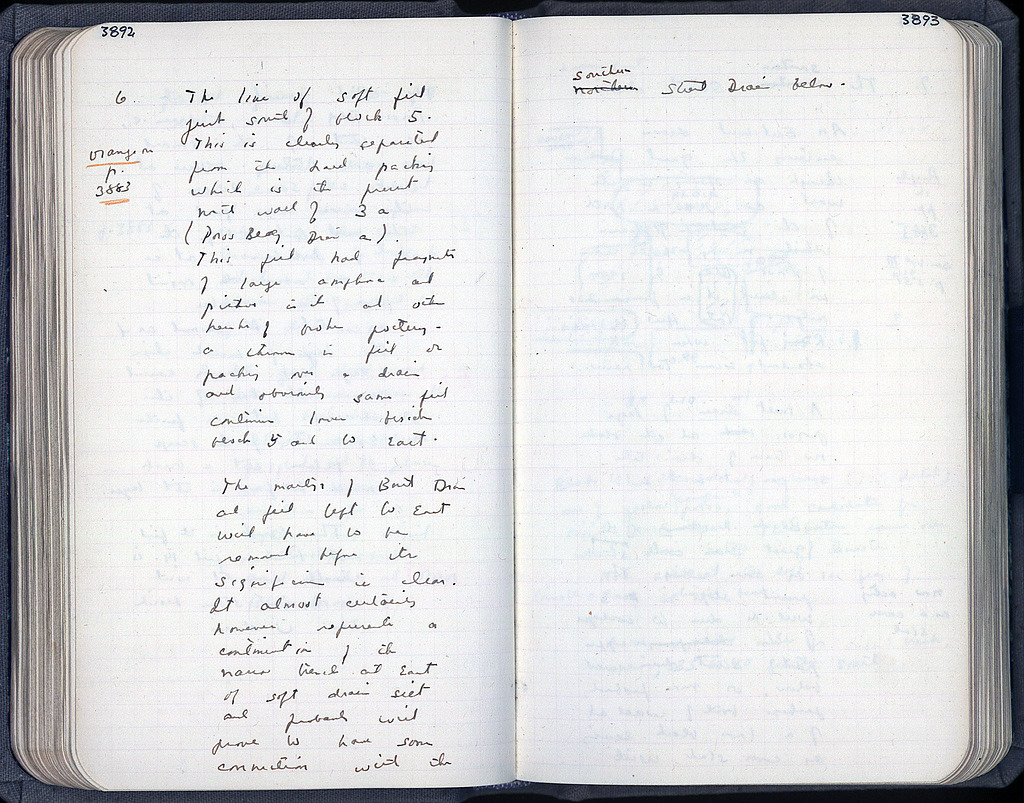 3892
6. The line of soft fill
just south of block 5.
orange on
p.
3883
This is clearly separated
from the hard packing
which is the present
north wall of 3a
(Poros Block Drain a).
This fill had fragments
of large amphora and
pithos in it and other
hunks of broken pottery -
a in fill or
packing over a drain
and obviously same fill
continues lower beside
block 5 and to East.
The of Drain
and fill left to East
will have to be
removed before its
significance is clear.
It almost certainly
however represents a
continuation of the
narrow trench at East
of soft drain silt
and probably will
prove to have some
connection with the
3893
southern
northern Drain below.